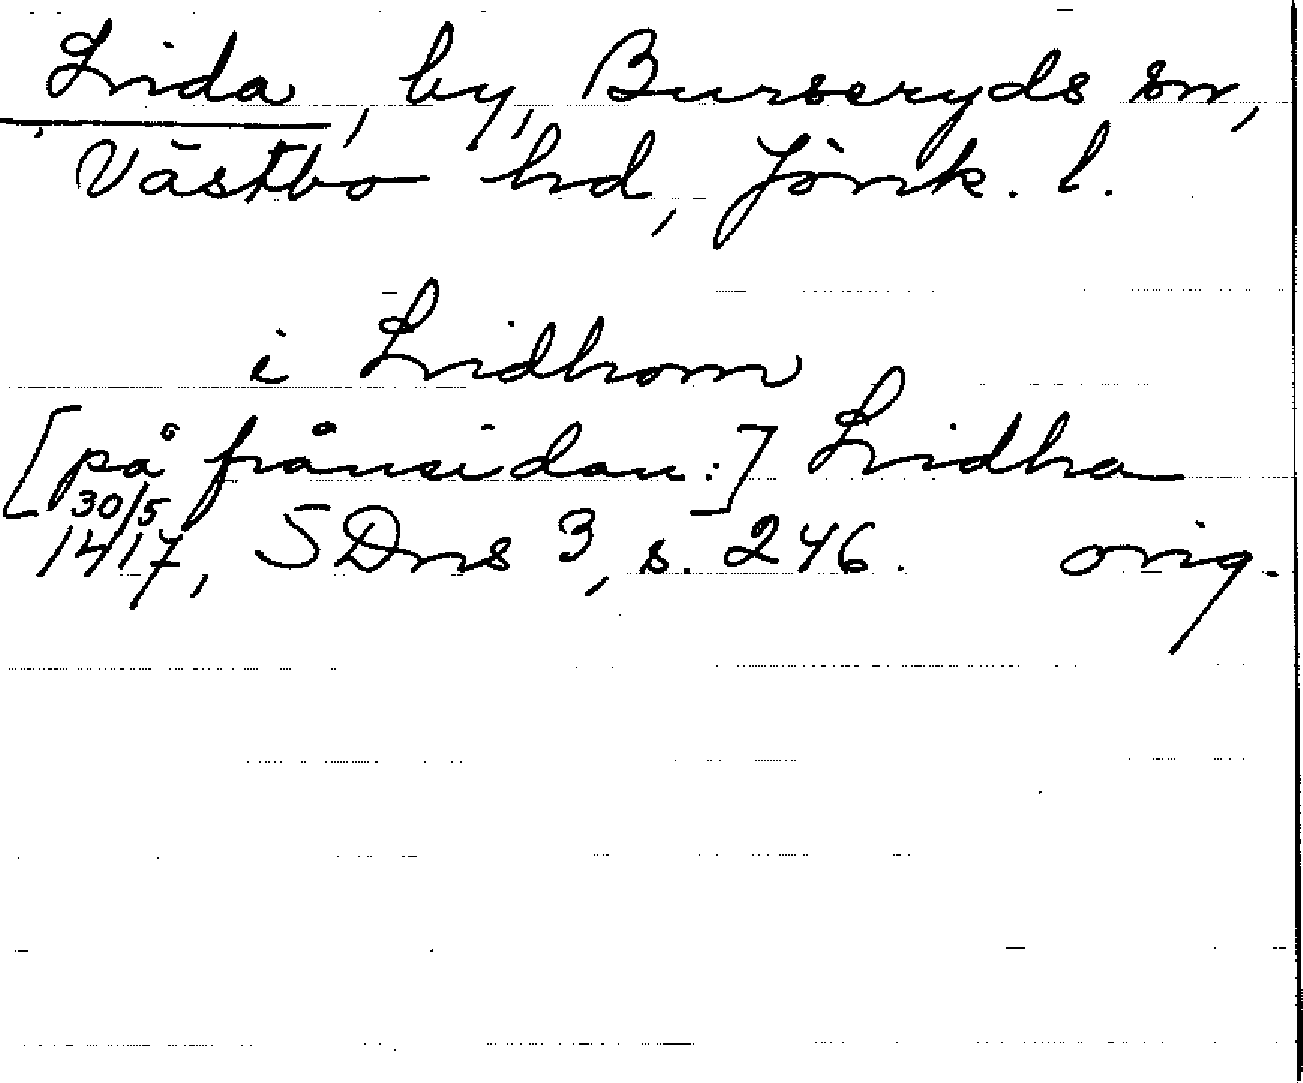 Lida, by, Burseryds sn,
Västbo hd, Jönk. l.
i Lidhom
[på frånsidan:] Lidha
30/5
1417, SDns 3, s. 246. orig.